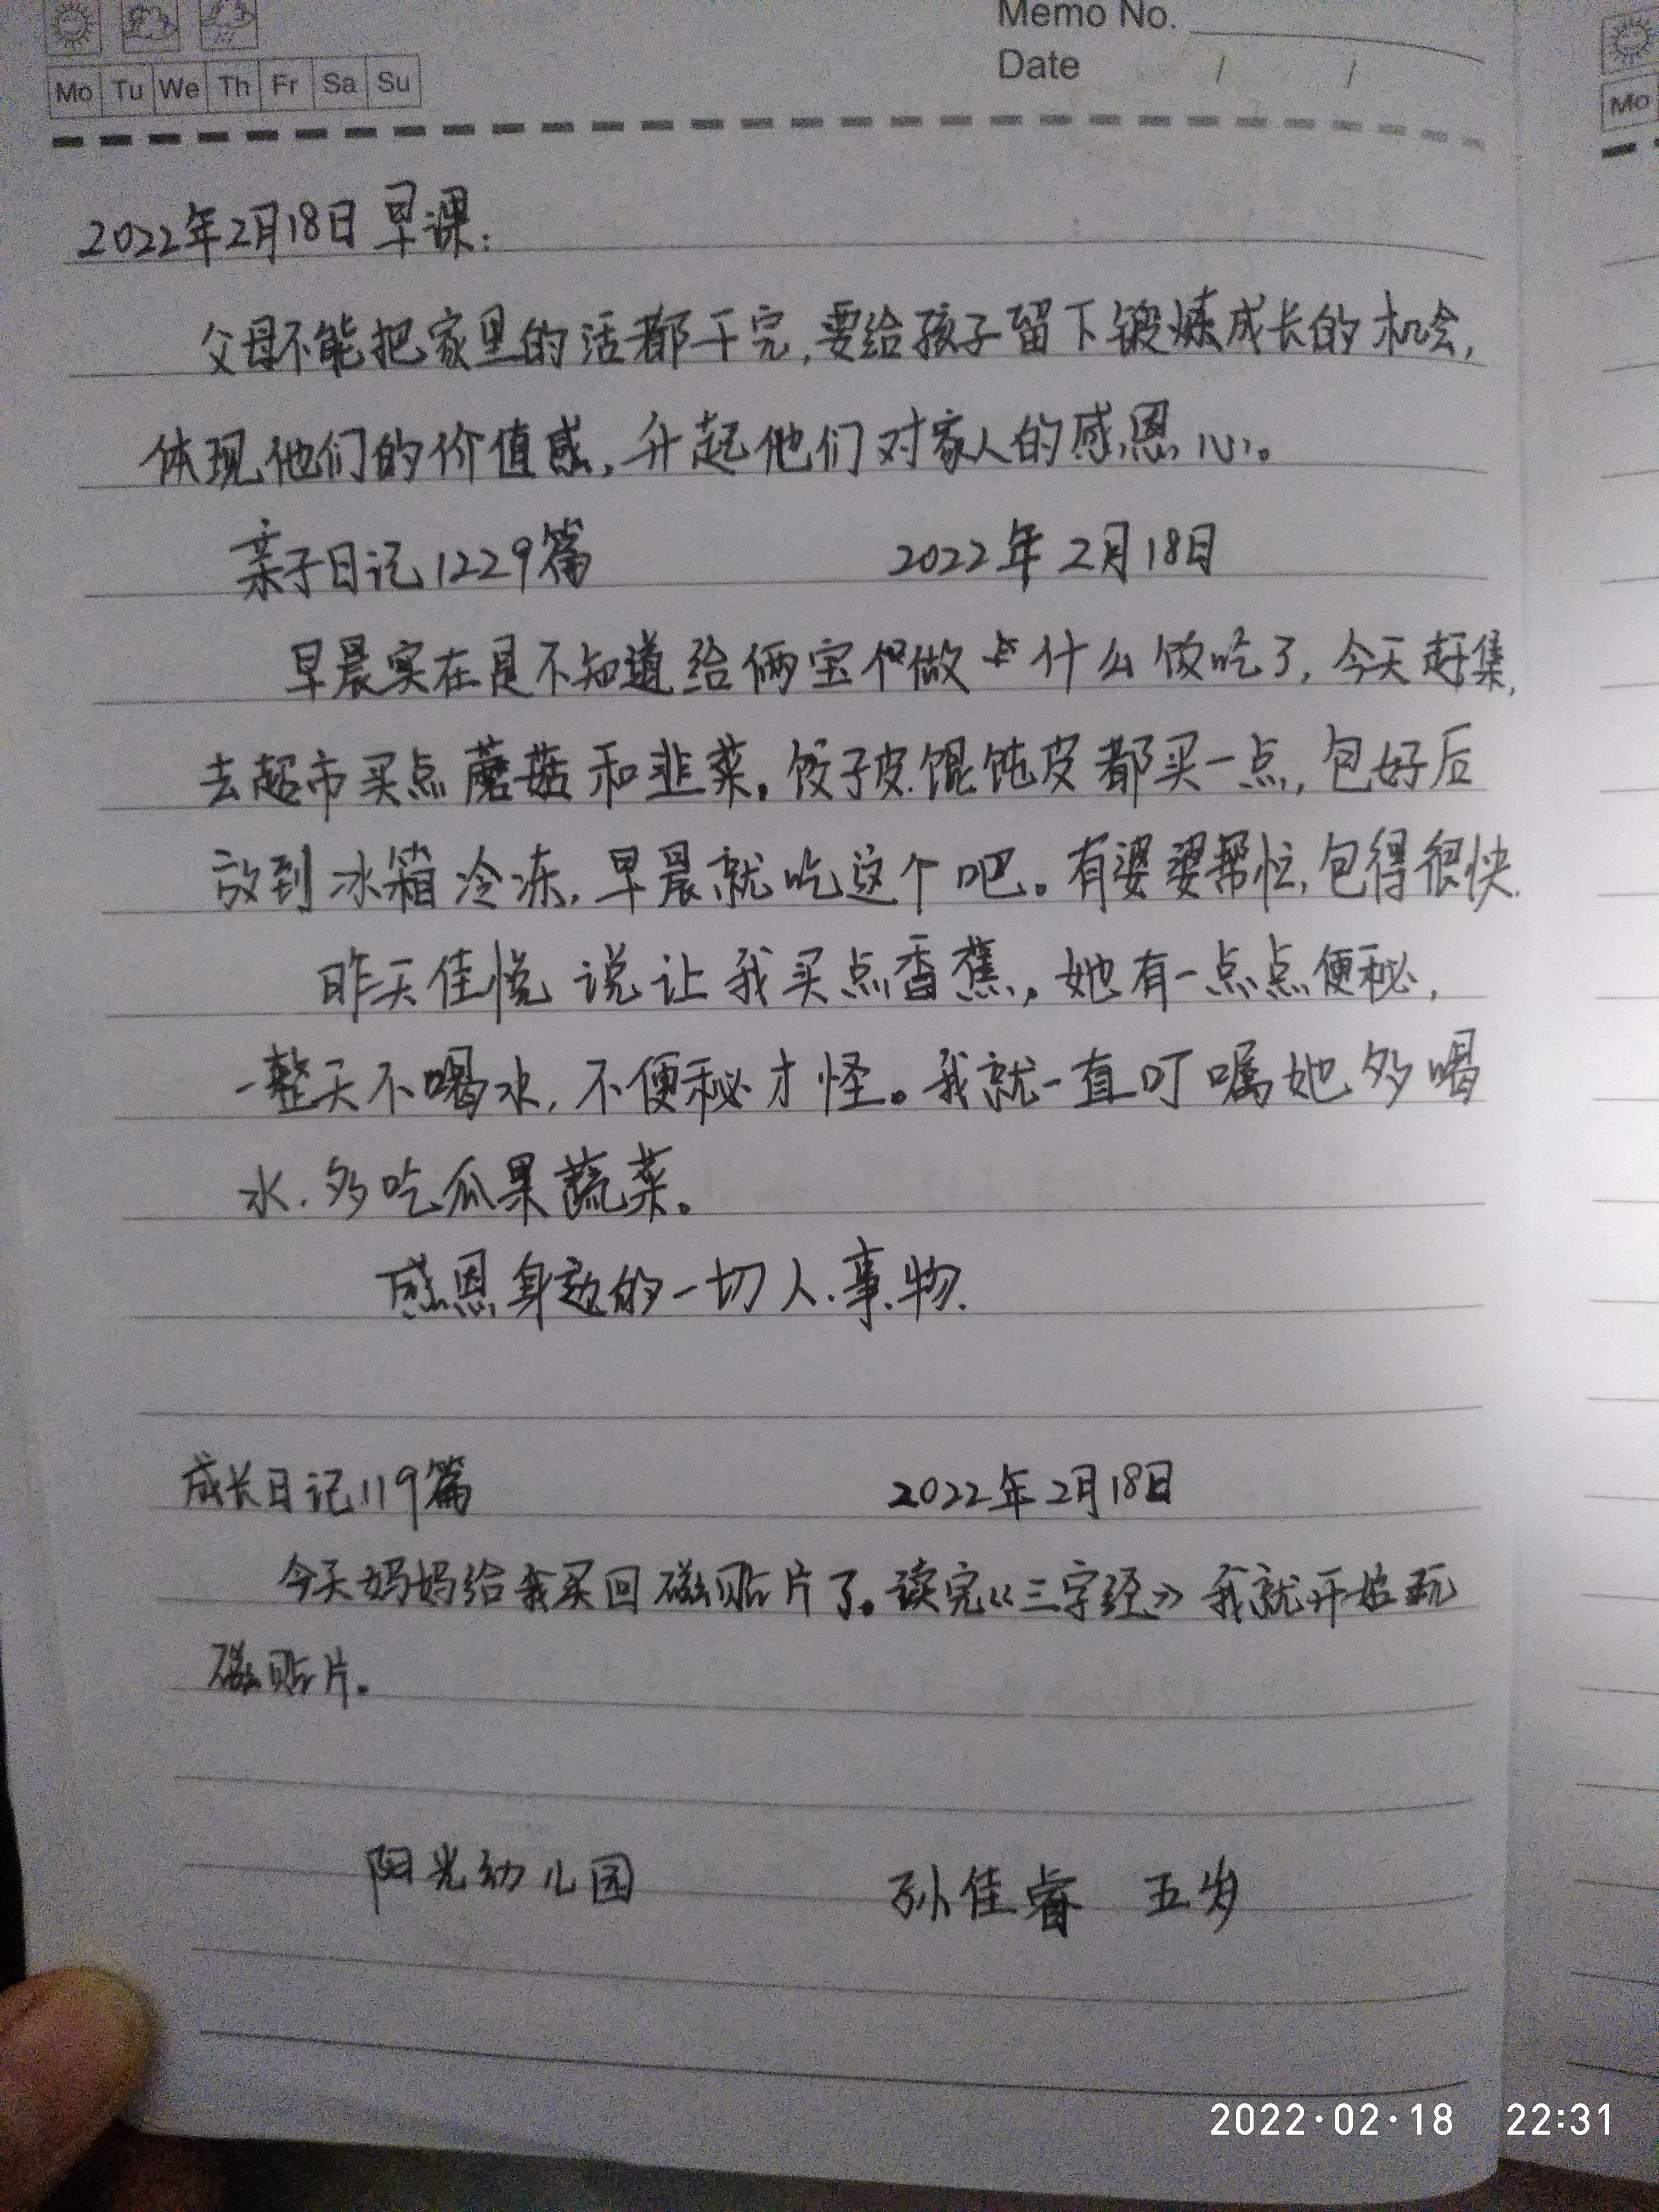 Memo No.
Date / /
Mo Tu We Th Fr Sa Su
Mo
2022年2月18日早课:
父母不能把家里的活都干完,要给孩子留下锻炼成长的机会,
体现他们的价值感,升起他们对家人的感恩心。
亲子日记1229篇 2022年2月18日
早晨实在是不知道给俩宝做什么饭吃了,今天赶集,
去超市买点蘑菇和韭菜。饺子皮.馄饨皮都买一点,包好后
放到冰箱冷冻,早晨就吃这个吧。有婆婆帮忙,包得很快.
昨天佳悦说让我买点香蕉,她有一点点便秘,
一整天不喝水,不便秘才怪。我就一直叮嘱她多喝
水.多吃瓜果蔬菜。
感恩身边的一切人.事.物.
成长日记119篇 2022年2月18日
今天妈妈给我买回磁贴片了。读完《三字经》我就开始玩
磁贴片。
阳光幼儿园 孙佳睿 五岁
2022·02·18 22:31